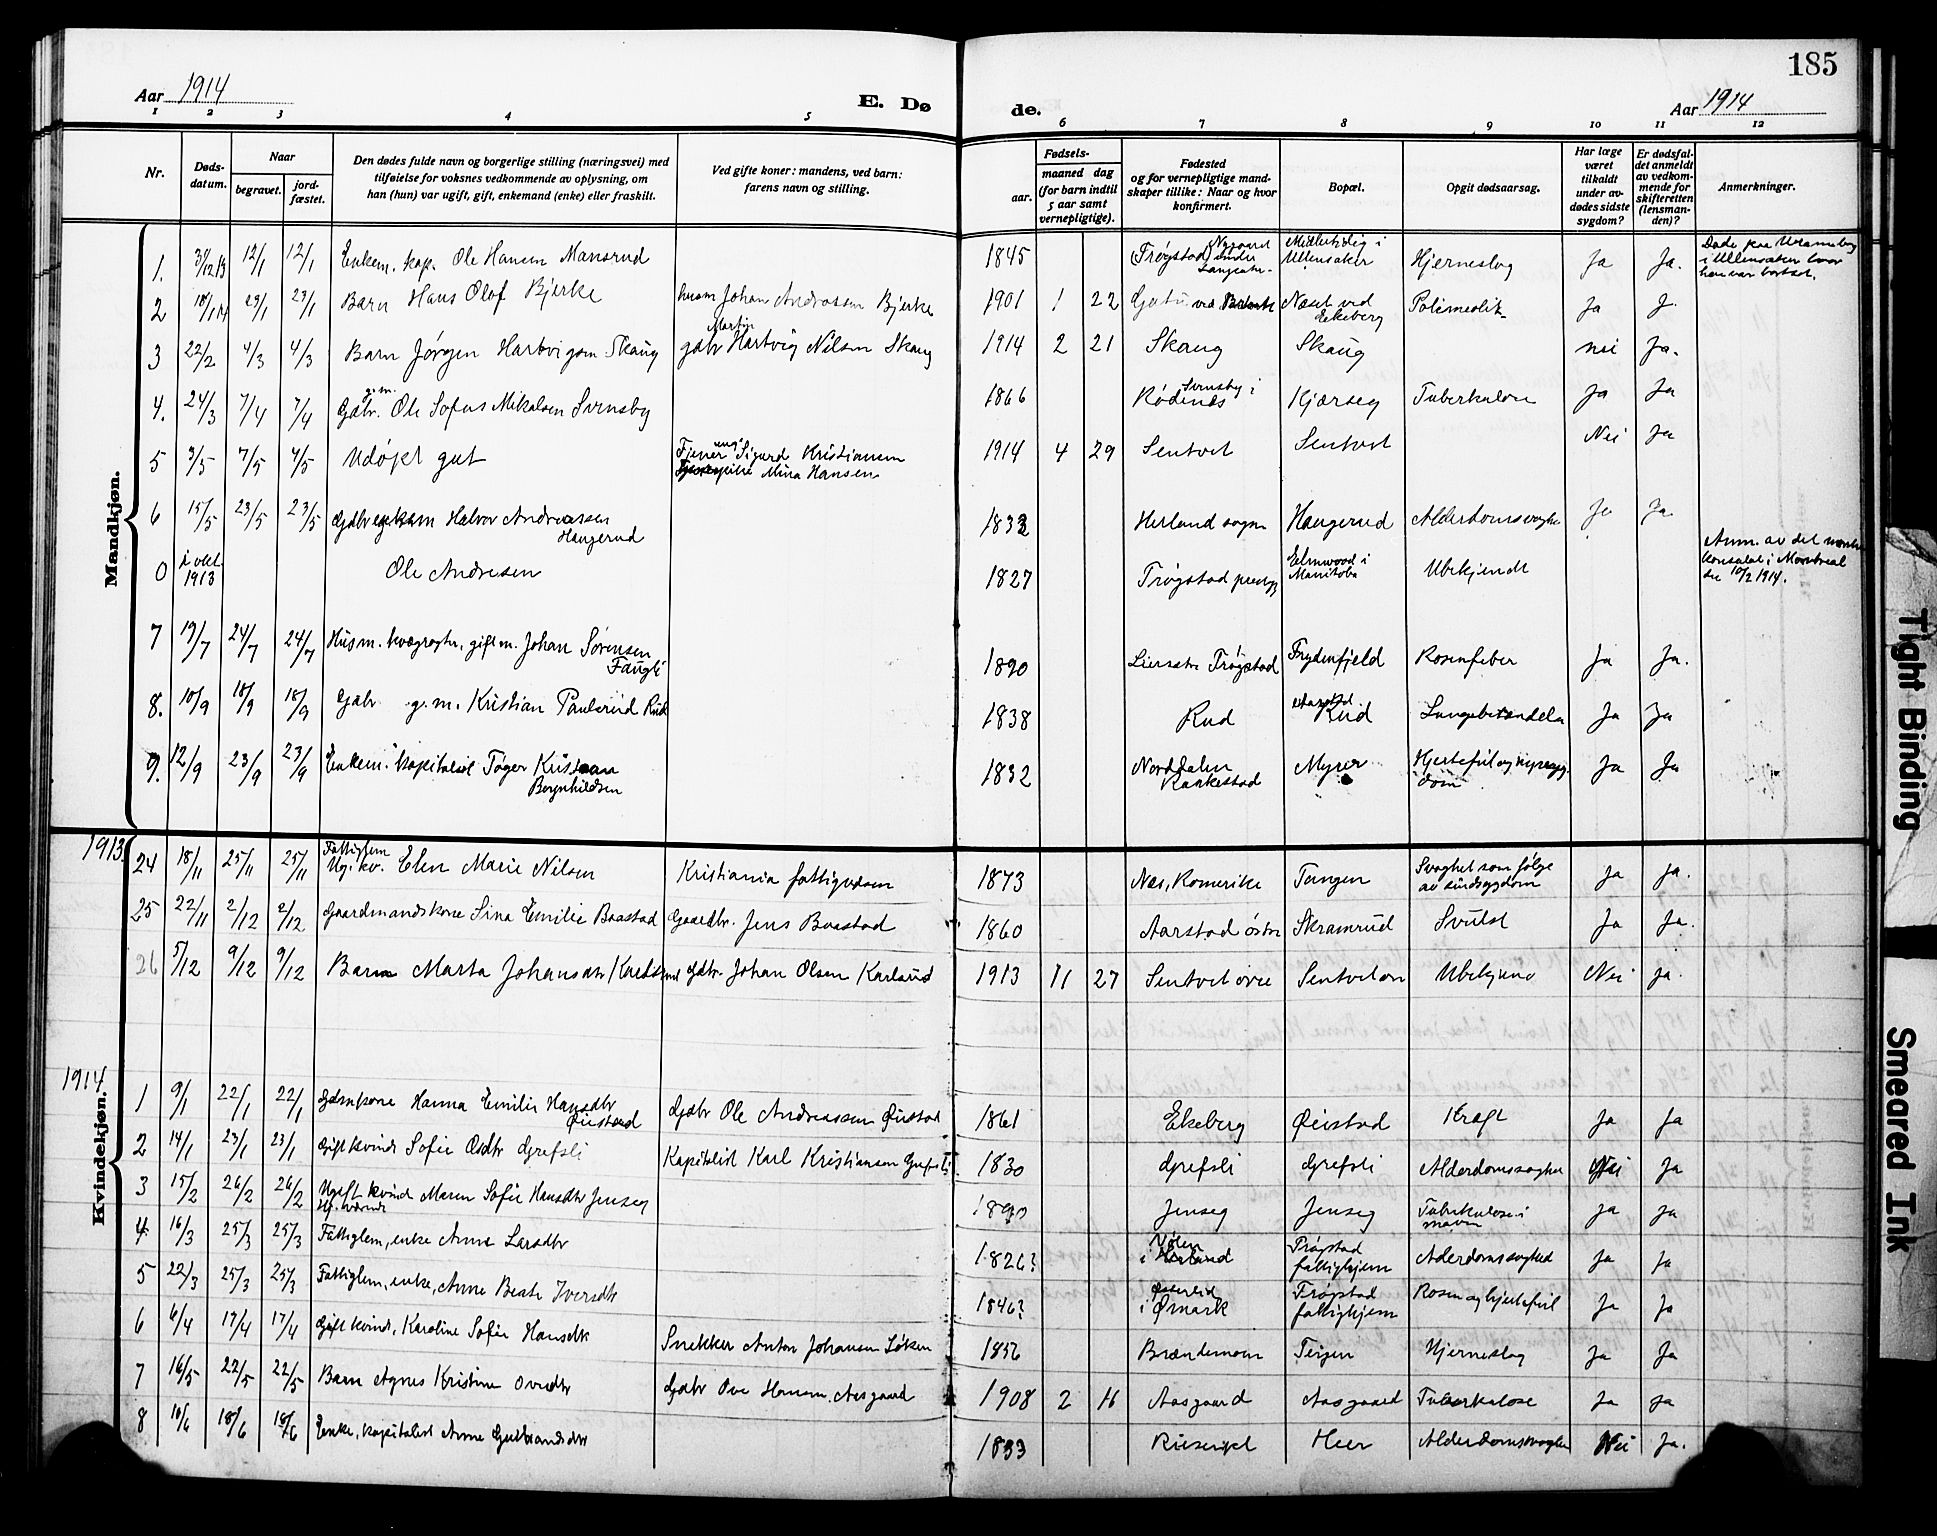 185
Aar 1914
E. Dø de.
Aar 1914
1 2 3 4 5 6 7 8 9 10 11 12
Nr.
Døds-datum.
Naar
begravet.
jord-fæstet.
Den dødes fulde navn og borgerlige stilling (næringsvei) med
tilføielse for voksnes vedkommende av oplysning, om
han (hun) var ugift, gift, enkemand (enke) eller fraskilt.
Ved gifte koner: mandens, ved barn:
farens navn og stilling.
Fødsels-
aar.
maaned dag
(for barn indtil
5 aar samt
vernepligtige).
Fødested
og for vernepligtige mand-
skaper tillike: Naar og hvor
konfirmert.
Bopæl.
Opgit dødsaarsag.
Har læge
været
tilkaldt
under av-
dødes sidste
sygdom?
Er dødsfal-
det anmeldt
av vedkom-
mende for
skifteretten
(lensman-
den)?
Anmerkninger.
Mandkjøn.
1. 31/12 13 12/1 12/1 Enkem. kap. Ole Hansen Mansrud 1845 Trøgstad Midlertidig i Ullensaker Hjerneslag Ja Ja.
i Ullensaker hvor
han var bortsat.
2 18/1 14 29/1 29/1 Barn Hans Olof Bjerke husm Johan Andreassen Bjerke 1901 1 22 Næset ved Eikeberg Ja J.
3 22/2 4/3 4/3 Barn Jørgen Hartvigsen Skaug gdbr Martin Hartvig Nilsen Skaug 1914 2 21 Skaug Skaug nei Ja.
4. 24/3 7/4 7/4 Gdbr. g.m. Ole Sofus Mikalsen Svensby 1866 Svensby i Rødenes Kjærseg Tuberkulose Ja Ja
5 3/5 7/5 7/5 Udøpt gut Tjener ung. Sigurd Kristiansen
Mina Hansen 1914 4 29 Sentvet Sentvet Nei Ja
6 15/5 23/5 23/5 Halvor Andreassen Haugerud 1832 Herland sogn Haugerud Alderdomssvaghe Ja Ja.
0 i okt. 1913 Ole Andresen 1827 Trøgstad prestgj Elmwood i Manitoba Ubekjendt
Anm. av det norske
konsulat i Montreal
den 10/2 1914.
7 19/7 24/7 24/7 Husm. kvægrøgter, gift m. Johan Sørensen Faugli 1890 Trøgstad Frydenfjeld Rosenfeber Ja Ja.
8. 10/9 18/9 18/9 Gdbr g.m. Kristian Paulsrud Rud 1838 Rud Rud Lungebetændelse Ja Ja
9. 12/9 23/9 23/9 Enkem. kapitalist Tøger Kristian Bøgnhildsen 1832 Norddalen Rakkestad Myrer Hjertefeil og nyresyg-
dom Ja Ja
1913
24 18/11 25/11 25/11 Fattiglem Ug. kv. Elen Marie Nilsen Kristiania fattigvæsen 1873 Nes, Romerike Tangen Svaghet som følge
av sindssygdom Ja Ja.
25 22/11 2/12 2/12 Gaardmandskone Sina Emilie Baastad Gaardbr. Jens Baastad 1860 Aarstad østre Skramrud Svulst Ja Ja.
26 5/12 9/12 9/12 Barn Marta Johansdtr Karlsrud Gdbr. Johan Olsen Karlsrud 1913 11 27 Sentvet øvre Sentvet øv Ubekjend Nei Ja.
1914
Kvindekjøn.
1 9/1 22/1 22/1 Gdmkone Hanna Emilie Hansdtr Øiestad Gdbr Ole Andreassen Øiestad 1861 Ekeberg Øeistad Kræft Ja Ja
2 14/1 23/1 23/1 Gift kvinde Sofie Olsdtr Grefsli Kapitalist Karl Kristiansen Grefsli 1830 Grefsli Grefsli Alderdomssvaghe Nei Ja
3 15/2 26/2 26/2 Ugift kvinde Maren Sofie Hansdtr Jenseg 1890 Jenseg Jenseg Tuberkulose i
maven Ja Ja
4 16/3 25/3 25/3 Fattiglem, enke Anne Larsdtr 1826? i Herland Trøgstad fattighjem Alderdomssvaghed Ja Ja
5 22/3 25/3 25/3 Fattiglem, enke, Anne Beate Iversdtr 1846? i Ømark Trøgstad fattighjem Rosen og hjertefeil Ja Ja
6 6/4 17/4 17/4 Gift kvinde, Karoline Sofie Hansdtr Snekker Anton Johansen Løken 1856 Brændemoen Teigen Hjerneslag Ja Ja
7 16/5 22/5 22/5 Barn Agnes Kristine Ovedtr Gdbr Ove Hansen Aasgaard 1908 2 16 Aasgaard Aasgaard Tuberkulose Ja Ja
8 10/6 18/6 18/6 Enke, kapitalist Anne Gulbrandsdtr 1833 Heer Alderdomssvaghe Nei Ja.
Tight Binding
Smeared Ink